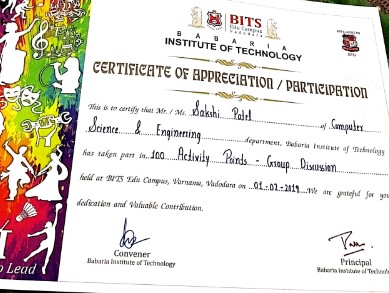 BITS
Edu Campus
VADODARA
AFFILIATED TO
GTU
BABARIA
INSTITUTE OF TECHNOLOGY
CERTIFICATE OF APPRECIATION / PARTICIPATION
This is to certify that Mr. / Ms. Sakshi Patel of Computer
Science & Engineering department, Babaria Institute of Technology
has taken part in 100 Activity Points - Group Discussion
held at BITS Edu Campus, Varnama, Vadodara on 01-02-2019. We are grateful for your
dedication and Valuable Contribution.
Convener
Babaria Institute of Technology
Principal
Babaria Institute of Technology
to Lead !